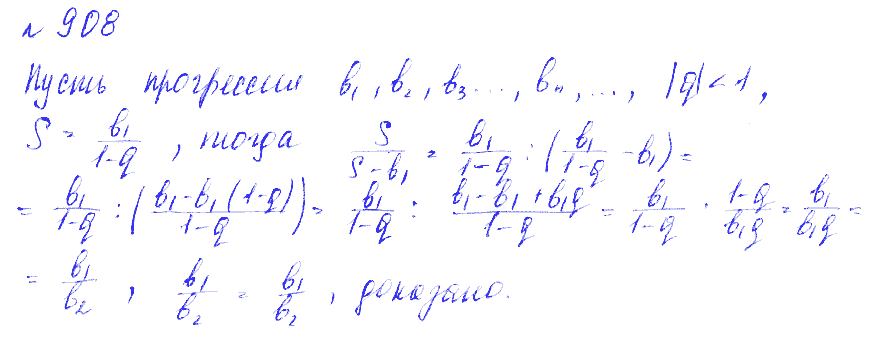 № 908
Пусть прогрессия b₁, b₂, b₃ ..., bₙ, ..., |q| < 1,
S = b₁/(1-q), тогда S/(S-b₁) = b₁/(1-q) : (b₁/(1-q) - b₁) =
= b₁/(1-q) : ((b₁-b₁(1-q))/(1-q)) = b₁/(1-q) : (b₁-b₁+b₁q)/(1-q) = b₁/(1-q) · (1-q)/(b₁q) = b₁/(b₁q) =
= b₁/b₂, b₁/b₂ = b₁/b₂, доказано.